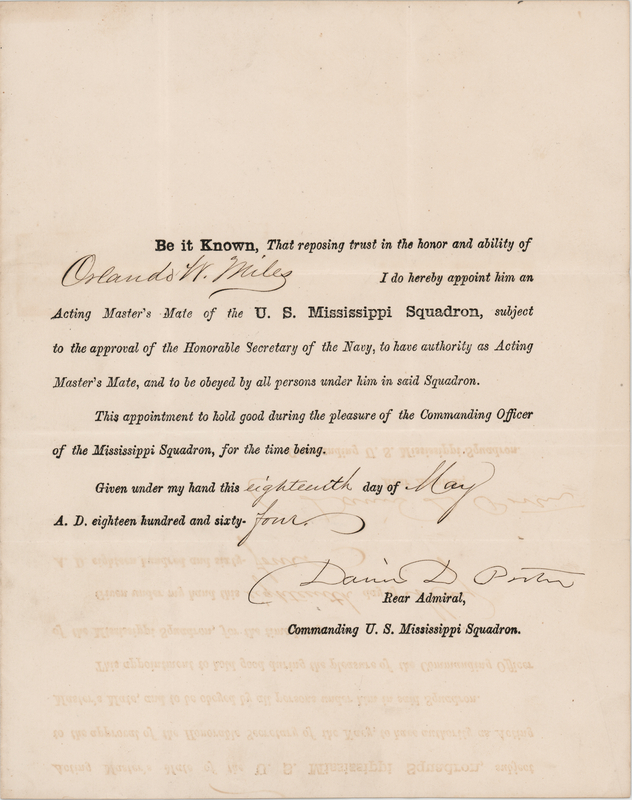 Be it Known, That reposing trust in the honor and ability of
Orlando W. Miles I do hereby appoint him an
Acting Master's Mate of the U. S. Mississippi Squadron, subject
to the approval of the Honorable Secretary of the Navy, to have authority as Acting
Master's Mate, and to be obeyed by all persons under him in said Squadron.
This appointment to hold good during the pleasure of the Commanding Officer
of the Mississippi Squadron, for the time being.
Given under my hand this eighteenth day of May
A. D. eighteen hundred and sixty- four.
David D Porter
Rear Admiral,
Commanding U. S. Mississippi Squadron.